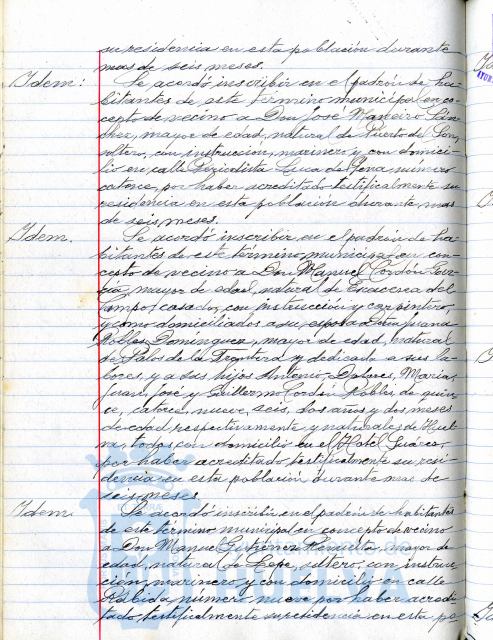 su residencia en esta población durante
mas de seis meses.
Idem: Se acordó inscribir en el padrón de ha-
bitantes de este término municipal en co
cepto de vecino a Don José Maneiro Sán
chez, mayor de edad, natural de Puerto del Son,
soltero, con instrucción, marinero y con domici-
lio en calle Periodista Luca de Tena número
catorce, por haber acreditado testificalmente su
residencia en esta población durante mas
de seis meses.
Idem. Se acordó inscribir en el padrón de ha-
bitantes de este término municipal en con-
cepto de vecino a Don Manuel Cordón
mayor de edad, natural de del
Campo, casado, con instrucción y carpintero,
y como domiciliados a su esposa Doña Juana
Robles Dominguez, mayor de edad, natural
de Palos de la Frontera y dedicada a sus la-
bores, y a sus hijos Antonio, Dolores, Maria,
Juan, José y Guillermo Cordón Robles de quin-
ce, catorce, nueve, seis, dos años y dos meses
de edad respectivamente y naturales de Huel-
va, todos con domicilio en el Hotel Suárez,
por haber acreditado testificalmente su resi-
dencia en esta población durante mas de
seis meses.
Idem. Se acordó inscribir en el padrón de habitantes
de este término municipal en concepto de vecino
a Don Manuel Gutiérrez mayor de
edad, natural de Lepe, soltero, con instruc-
ción, marinero y con domicilio en calle
Rábida número nueve por haber acredi-
tado testificalmente su residencia en esta po